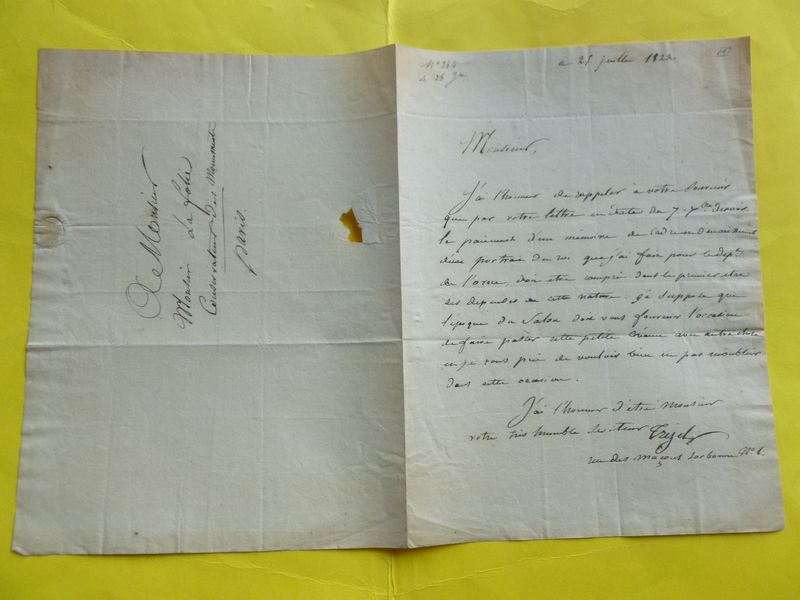 A Monsieur
Monsieur de Lafolie
Conservateur des Monuments
paris.
Nº 264
le 26 Jet
ce 25 juillet 1822.
Monsieur,
J'ai l'honneur de rappeler à votre Souvenir
que par votre lettre en date du 7. dernier
le paiement d'un mémoire de
d'un portrait du roi que j'ai fait pour le dept
de l'orne, doit etre compris dans le premier état
des depenses de cette nature. Je suppose que
l'époque du Salon doit vous fournir l'occasion
de faire passer cette petite Créance avec autre chose
et je vous prie de vouloir bien ne pas m'oublier
dans cette occasion.
J'ai l'honneur d'être Monsieur
votre très humble Serviteur
rue des maçons Sorbonne Nº 1.